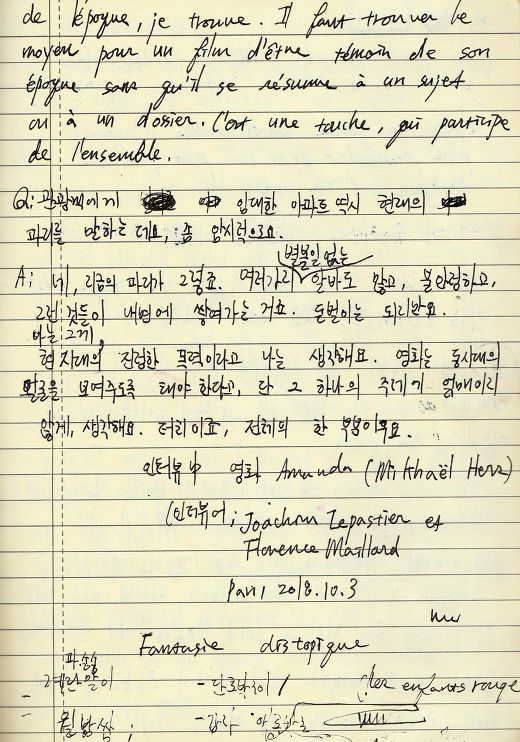 de l'époque, je trouve. Il faut trouver le
moyen pour un film d'être témoin de son
époque sans qu'il se résume à un sujet
ou à un dossier. C'est une touche, qui participe
de l'ensemble.
Q: 관광객에게 임대한 아파트 역시 현재의
파리를 말하는 데요, 좀 암시적으로요.
별볼일 없는
A: 네, 지금의 파리가 그렇죠. 여러가지 알바도 많고, 불안정하고,
그런 것들이 내면에 쌓여가는 거죠. 돈벌이는 되지만요.
나는 그게,
현 시대의 진정한 폭력이라고 나는 생각해요. 영화는 동시대의
보여주도록 해야 한다고, 단 그 하나의 주제에 얽매이지
않게, 생각해요. 터치이죠, 전체의 한 부분이구요.
인터뷰 中 영화 Amanda (Mikhaël Hers)
(인터뷰어; Joachim Lepastier et
Florence Maillard
Paris 2018.10.3
Fantasie distopique
파. 송송
계란말이 - 단호박구이 / les enfants rouge
쌈; - 감자